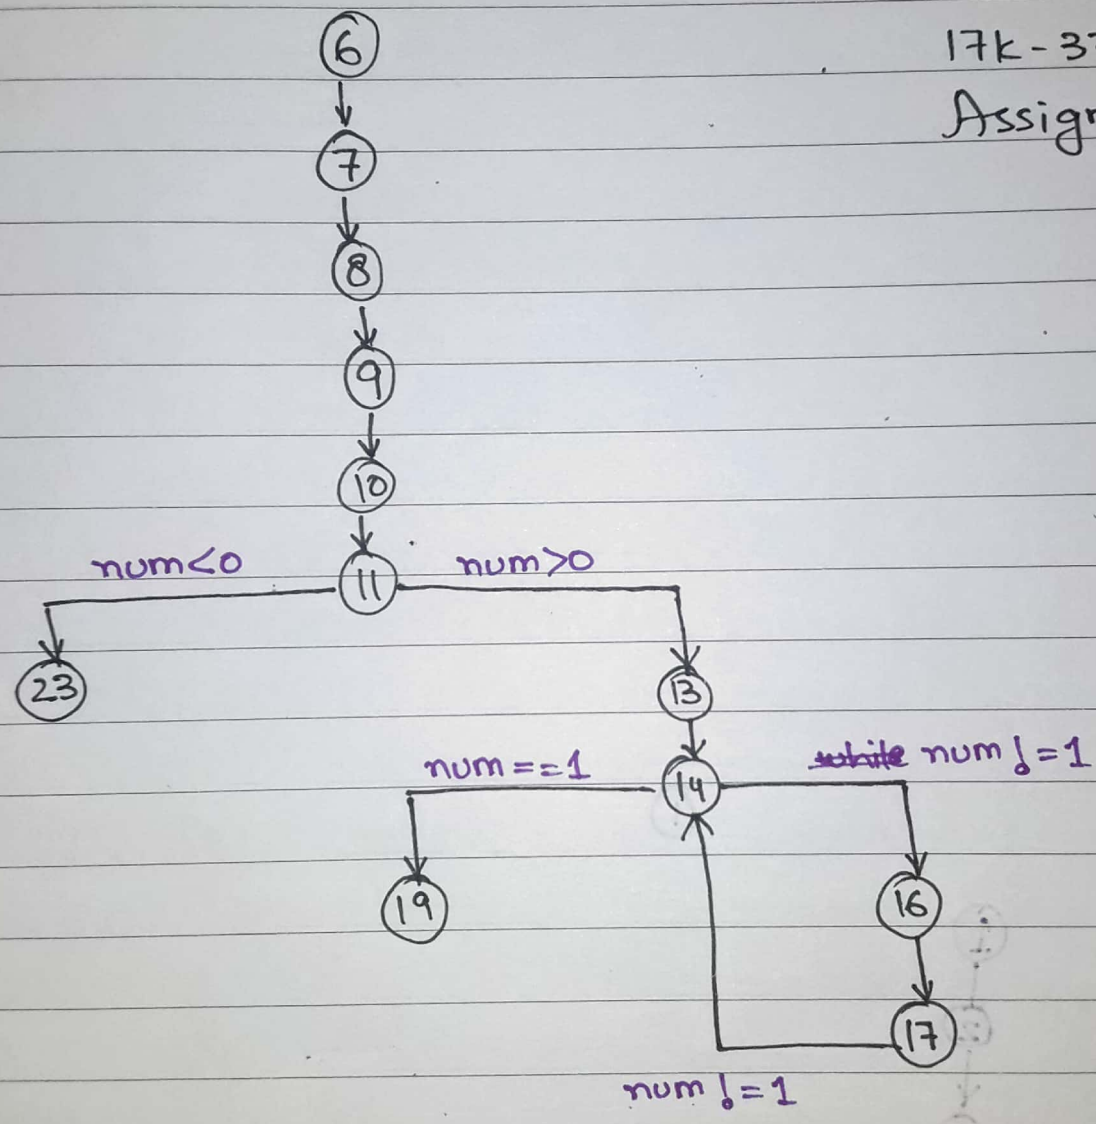 6
17k-3
Assign
7
8
9
10
num<0 11 num>0
23 13
num==1 14 while num!=1
19 16
17
num!=1